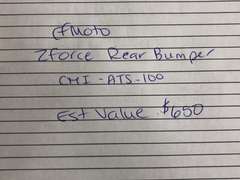 CFMOTO
Zforce Rear Bumper
CMI-ATS-100
Est Value $650